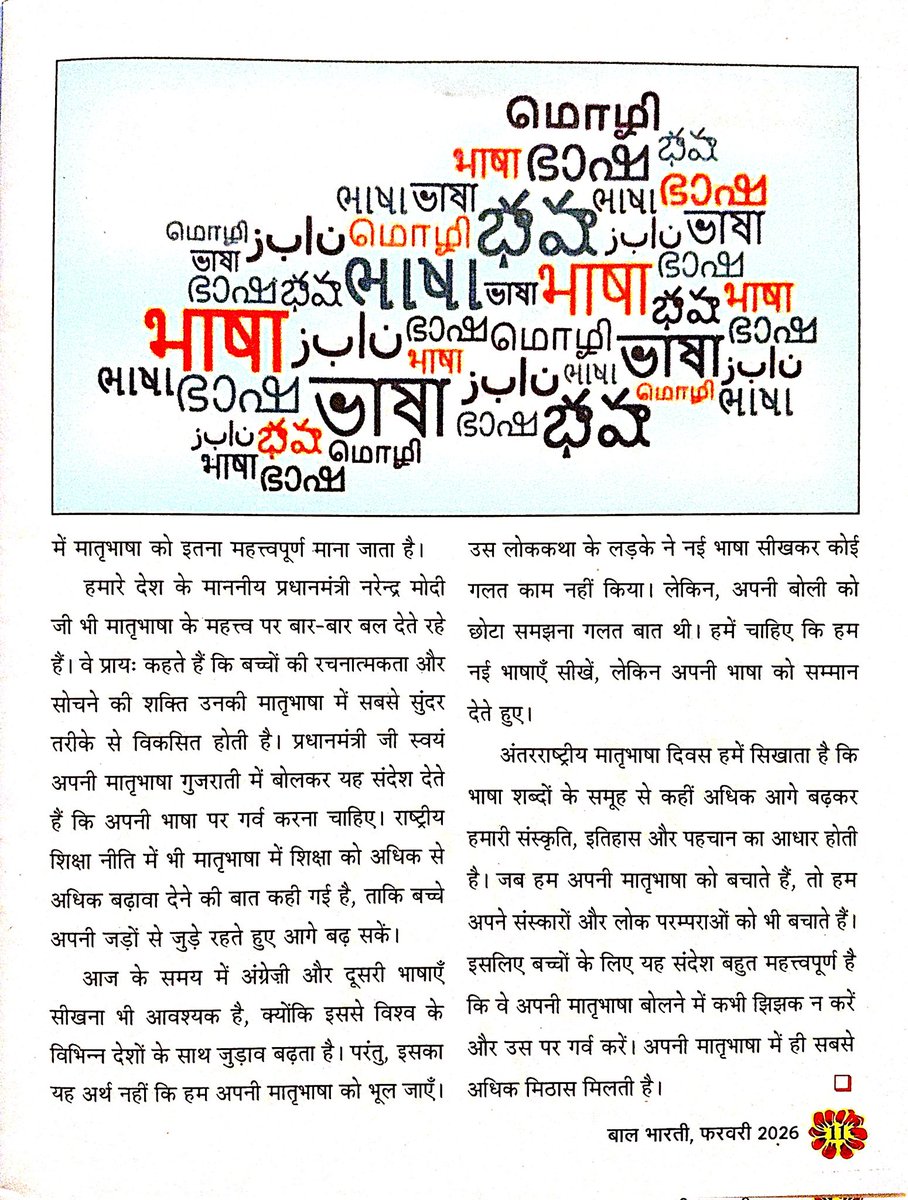 மொழி
भाषा ഭാഷ భాష
ભાષા ভাষা భాష ભાષા ഭാഷ
மொழி زبان மொழி భాష زبان ভাষা
ভাষা ഭാഷ భాష ભાષા ভাষা भाषा ഭാഷ భాష भाषा
भाषा زبان ഭാഷ भाषा மொழி ভাষা ഭാഷ زبان
ભાષા ഭാഷ ভাষা زبان ભાષા மொழி ભાષા
زبان భాష மொழி ഭാഷ భాష
भाषा ഭാഷ
में मातृभाषा को इतना महत्त्वपूर्ण माना जाता है।
हमारे देश के माननीय प्रधानमंत्री नरेन्द्र मोदी
जी भी मातृभाषा के महत्त्व पर बार-बार बल देते रहे
हैं। वे प्रायः कहते हैं कि बच्चों की रचनात्मकता और
सोचने की शक्ति उनकी मातृभाषा में सबसे सुंदर
तरीके से विकसित होती है। प्रधानमंत्री जी स्वयं
अपनी मातृभाषा गुजराती में बोलकर यह संदेश देते
हैं कि अपनी भाषा पर गर्व करना चाहिए। राष्ट्रीय
शिक्षा नीति में भी मातृभाषा में शिक्षा को अधिक से
अधिक बढ़ावा देने की बात कही गई है, ताकि बच्चे
अपनी जड़ों से जुड़े रहते हुए आगे बढ़ सकें।
आज के समय में अंग्रेज़ी और दूसरी भाषाएँ
सीखना भी आवश्यक है, क्योंकि इससे विश्व के
विभिन्न देशों के साथ जुड़ाव बढ़ता है। परंतु, इसका
यह अर्थ नहीं कि हम अपनी मातृभाषा को भूल जाएँ।
उस लोककथा के लड़के ने नई भाषा सीखकर कोई
गलत काम नहीं किया। लेकिन, अपनी बोली को
छोटा समझना गलत बात थी। हमें चाहिए कि हम
नई भाषाएँ सीखें, लेकिन अपनी भाषा को सम्मान
देते हुए।
अंतरराष्ट्रीय मातृभाषा दिवस हमें सिखाता है कि
भाषा शब्दों के समूह से कहीं अधिक आगे बढ़कर
हमारी संस्कृति, इतिहास और पहचान का आधार होती
है। जब हम अपनी मातृभाषा को बचाते हैं, तो हम
अपने संस्कारों और लोक परम्पराओं को भी बचाते हैं।
इसलिए बच्चों के लिए यह संदेश बहुत महत्त्वपूर्ण है
कि वे अपनी मातृभाषा बोलने में कभी झिझक न करें
और उस पर गर्व करें। अपनी मातृभाषा में ही सबसे
अधिक मिठास मिलती है।
बाल भारती, फरवरी 2026 11